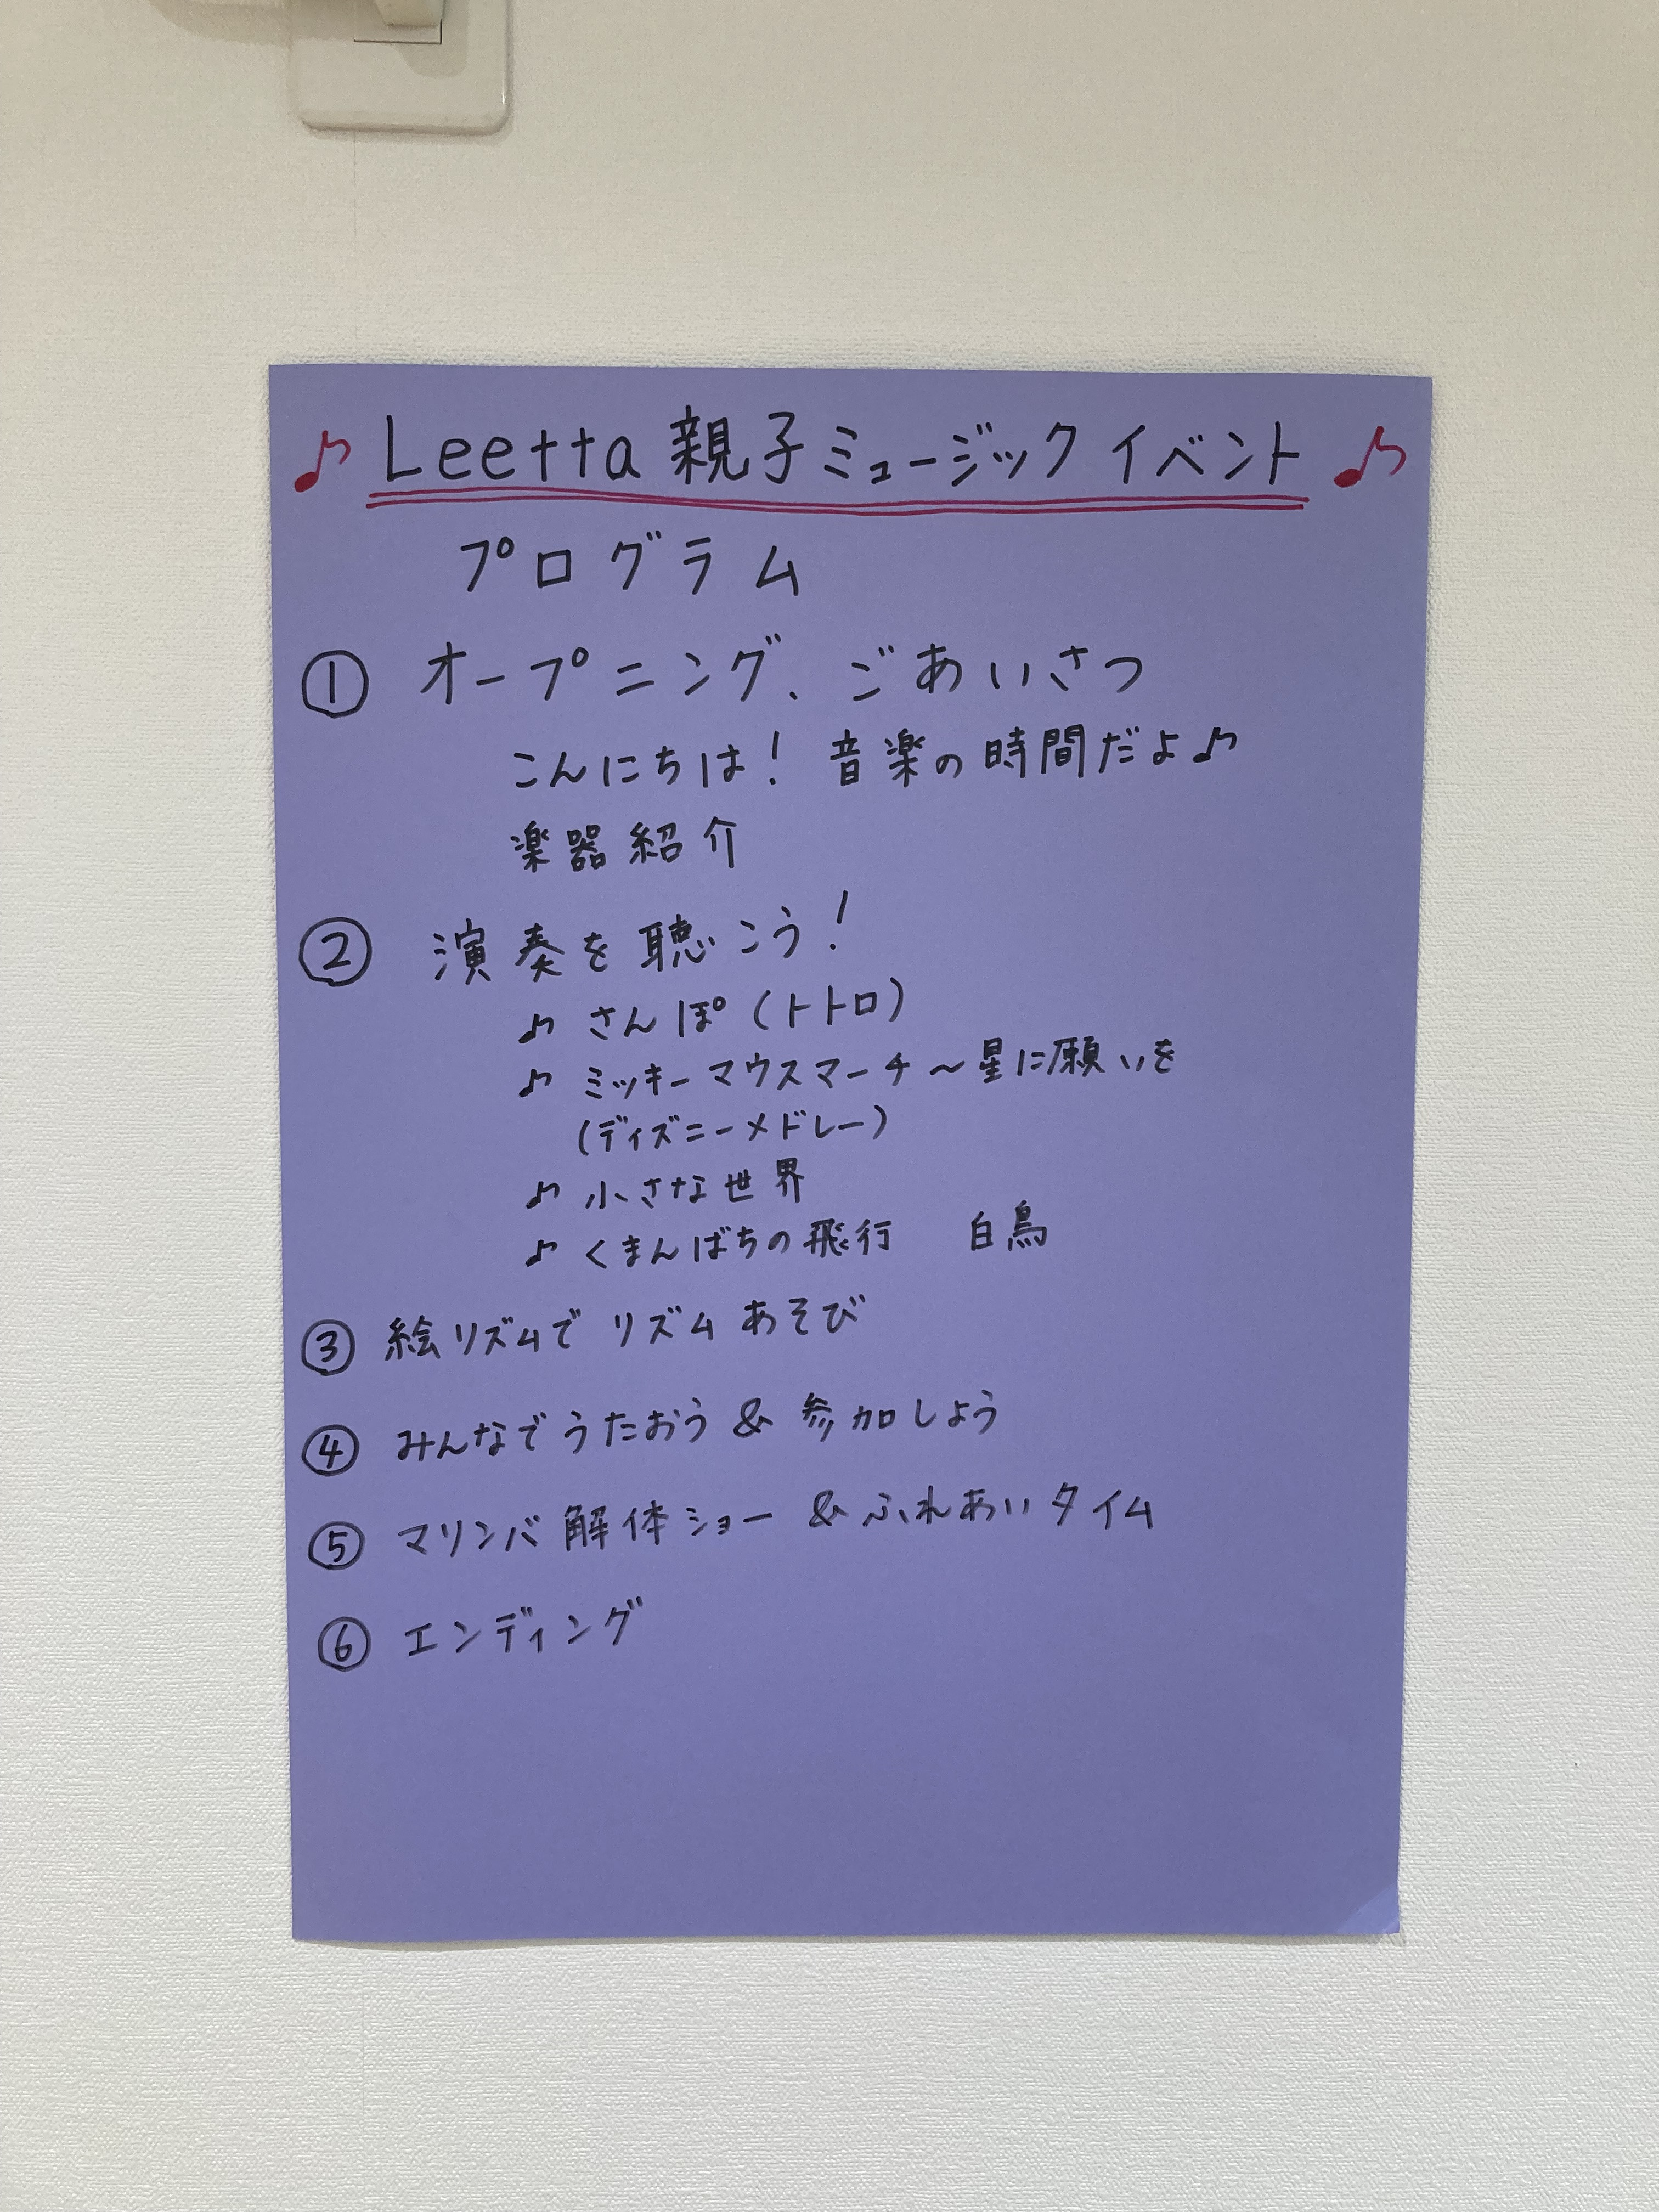 ♪ Leetta 親子ミュージックイベント ♪
プログラム
① オープニング、ごあいさつ
こんにちは! 音楽の時間だよ♪
楽器紹介
② 演奏を聴こう!
♪ さんぽ(トトロ)
♪ ミッキーマウスマーチ〜星に願いを
(ディズニーメドレー)
♪ 小さな世界
♪ くまんばちの飛行 白鳥
③ 絵リズムで リズムあそび
④ みんなでうたおう & 参加しよう
⑤ マリンバ解体ショー & ふれあいタイム
⑥ エンディング